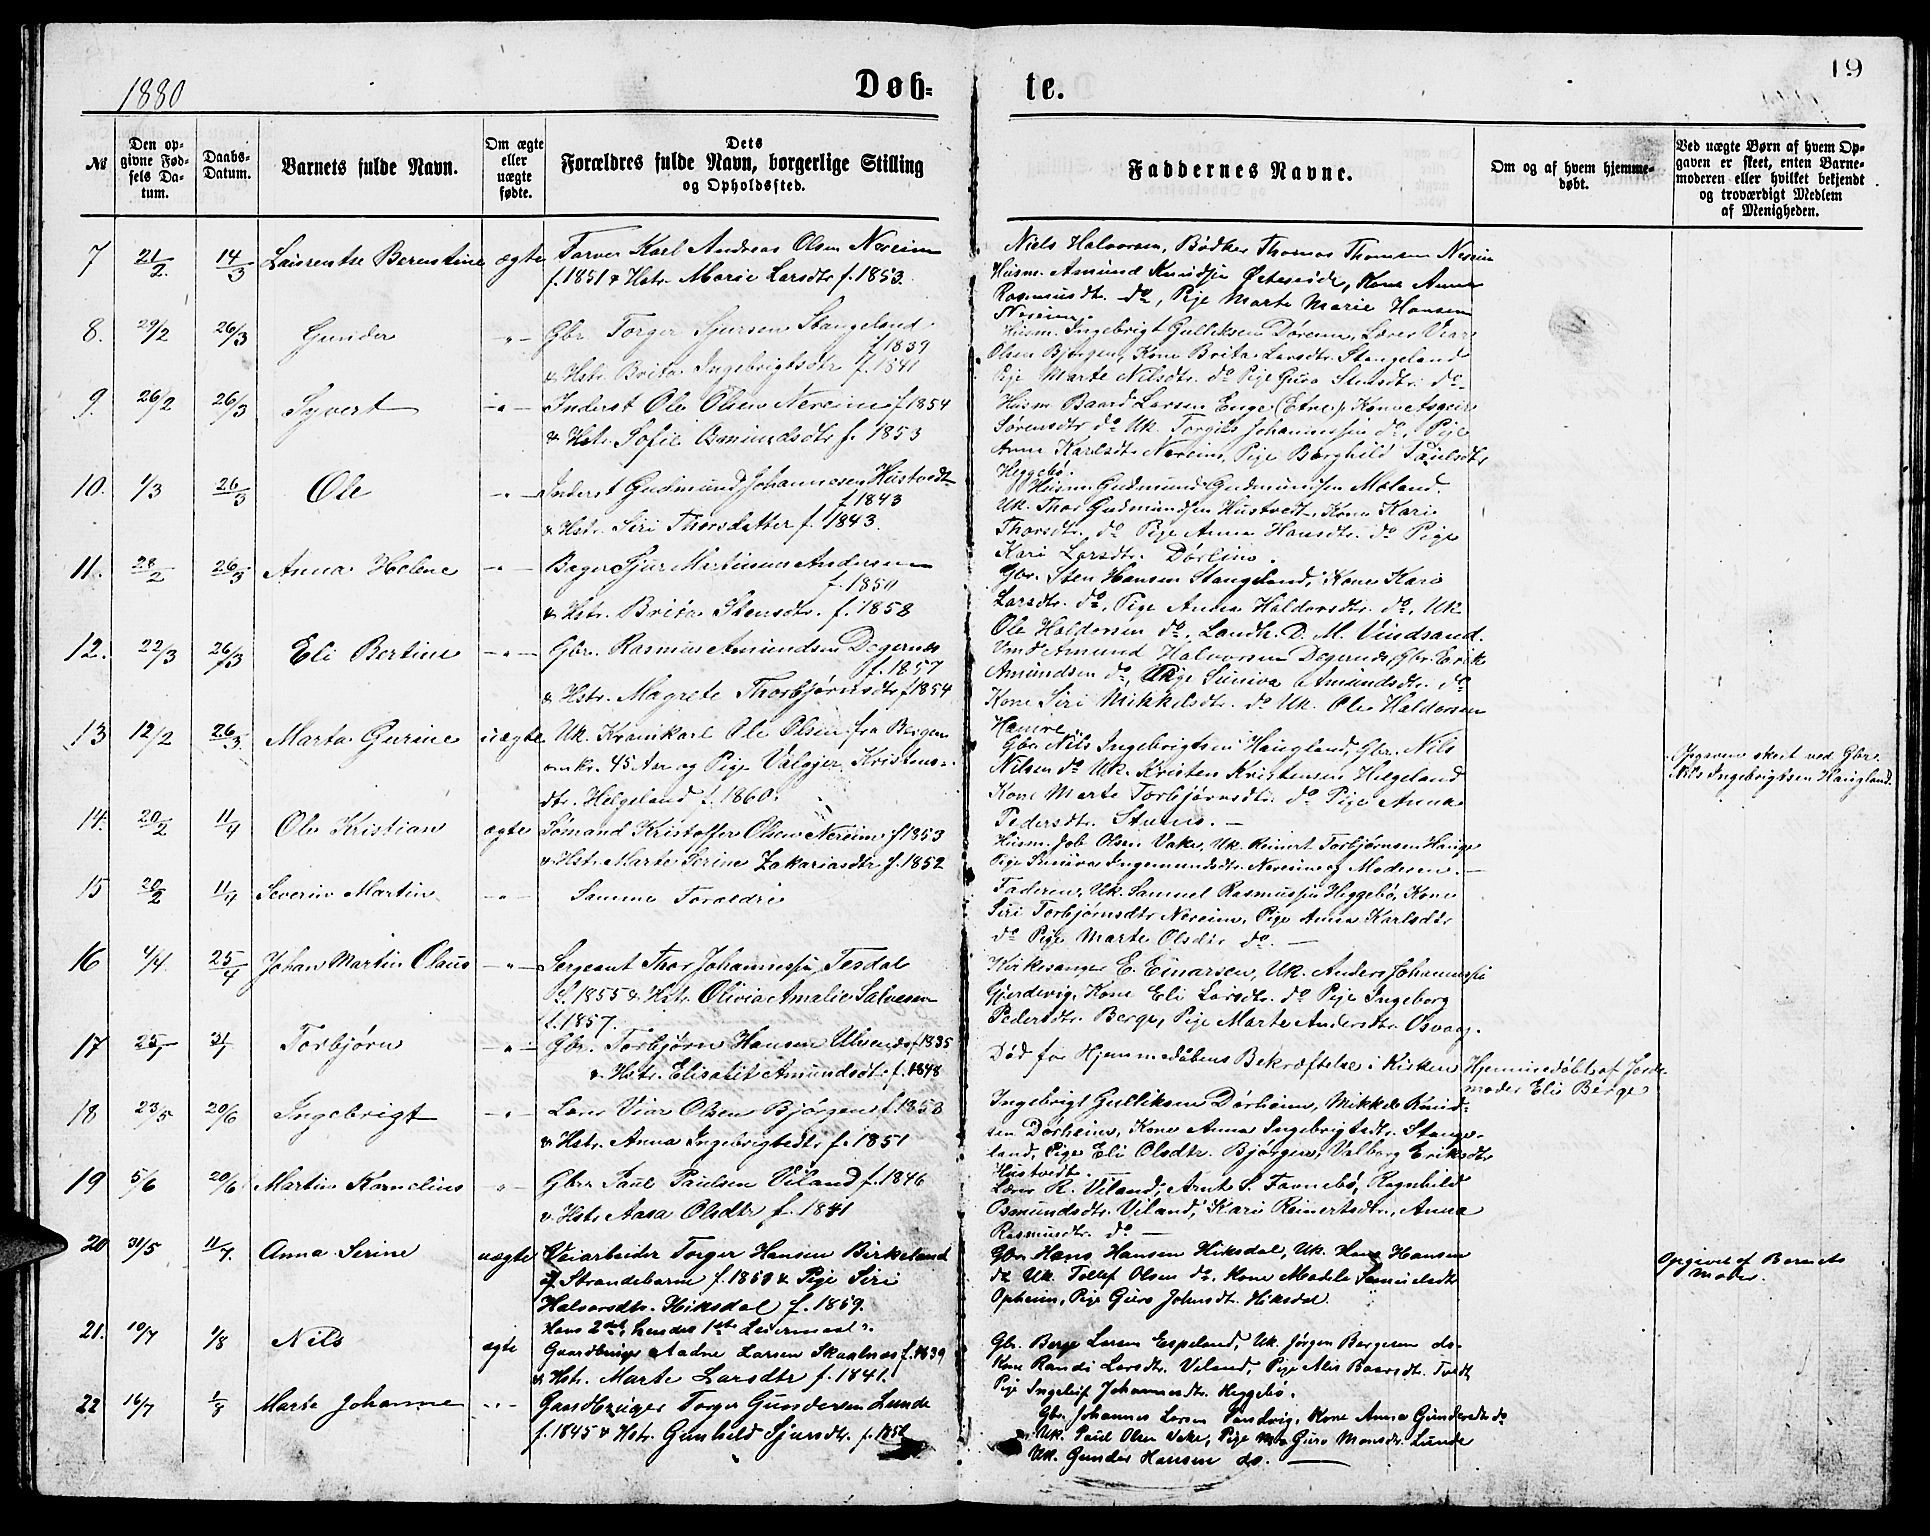 1880
Døb=
te.
19
№
Den opgivne Fødsels Datum.
Daabs-Datum.
Barnets fulde Navn.
Om ægte eller uægte fødte.
Dets Forældres fulde Navn, borgerlige Stilling og Opholdssted.
Faddernes Navne.
Om og af hvem hjemmedøbt.
Ved uægte Børn af hvem Opgaven er skeet, enten Barnemoderen eller hvilket bekjendt og troværdigt Medlem af Menigheden.
7 21/2 14/3 Laurentse Berentine ægte Farver Karl Andreas Olsen Nereim
f. 1851 & Hstr. Marie Larsdtr f. 1853.
Niels Halvorsen, Bødker Thomas Thomsen Nereim
Husm. Amund Knudsen Østesøide, Kone Anna
Rasmusdtr. do, Pije Marte Marie Hansen
Nereim.
8. 29/2 26/3 Gunder -"- Gbr. Torger Sjursen Stangeland
f 1839
& Hstr. Brita Ingebrigtsdtr f. 1841
Husm. Ingebrigt Gulliksen Dørheim, Lærer Viar
Olsen Bjørgen, Kone Brita Larsdtr. Stangeland
Pije Marte Nilsdtr. do Pije Guro Stensdtr. do
9. 26/2 26/3 Syvert -"- Inderst Ole Olsen Nereim f 1854
& Hstr. Sofie Osmundsdtr f. 1853
Husm. Baard Larsen Enge (Etne), Kone Asgjer
Sørensdtr do Uk. Torgils Johannessen do, Pije
Anna Karlsdtr Nereim, Pige Borghild Paulsdtr
Heggebø.
10. 1/3 26/3 Ole -"- Inderst Gudmund Johannesen Hustvedt
f. 1843
& Hstr. Siri Thorsdatter f. 1843.
Husm. Gudmund Gudmundsen Moland.
Uk. Thor Gudmundsen Hustvedt, Kone Kari
Thorsdtr. do Pije Anna Hansdtr. do Pige
Kari Larsdtr. Dørheim.
11. 28/2 26/3 Anna Helene -"- Bager Sjur Martinus Andersen
f. 1850
& Hstr. Brita Stensdtr. f. 1858
Gbr. Sten Hansen Stangeland, Kone Kari
Larsdtr. do, Pige Anna Haldorsdtr. do, Uk.
Ole Haldorsen do, Landh. D. M. Vindsand.
12. 22/3 26/3 Eli Bertine -"- Gbr. Rasmus Amundsen Degernes
f. 1857
& Hstr. Magrete Thorbjørnsdtr f 1854
Umd. Amund Halvorsen Degernes, Gbr. Erik
Amundsen do, Pige Suniva Amundsdtr. do
Kone Siri Mikkelsdtr. do Uk. Ole Haldorsen
Hamre.
13 12/2 26/3 Marta Gurine uægte Uk. Kramkarl Ole Olsen fra Bergen
omkr. 45 Aar og Pige Valgjer Kristens-
dtr. Helgeland f. 1860.
Gbr. Nils Ingebrigtsen Haugland, Gbr. Nils
Nilsen do Uk. Kristen Kristensen Helgeland
Kone Marte Torbjørnsdtr. do Pige Anna
Pedersdtr. Stums. —
Opgaven skeet ved Gbr.
Nils Ingebrigtsen Haugland.
14. 20/2 11/4 Ole Kristian ægte Sømand Kristoffer Olsen Nereim f 1853
& Hstr. Marte Serine Zakariasdtr f. 1852
Husm. Job Olsen Vake, Uk. Reinert Torbjørnsen Hauge
Pije Suniva Ingemundsdtr. Nereim og Moderen. —
15 20/2 11/4 Severin Martin -"- Samme Foreldre
Faderen, Uk. Samuel Rasmussen Heggebø, Kone
Siri Torbjørnsdtr Nereim, Pige Anna Karlsdtr
do Pige Marte Olsdtr do. —
16 4/4 25/4 Johan Martin Olaus -"- Sergeant Thor Johannessen Tesdal
f. 1855 & Hstr. Olivia Amalie Salvesen
f. 1857.
Kirkesanger E. Einarsen, Uk. Anders Johannessen
Gjerdevig, Kone Eli Larsdtr. do Pije Ingeborg
Pedersdtr. Berge, Pije Marte Andersdtr Osvaag.
17 Torbjørn -"- Gbr. Torbjørn Hansen Ulvenæs f 1835
& Hstr. Elisabet Amundsdtr. f. 1848
Død før Hjemmedaabens Bekræftelse i Kirken
Hjemmedøbt af Jorde-
moder Eli Berge
18 23/5 20/6 Ingebrigt -"- Lærer Viar Olsen Bjørgen f. 1850
& Hstr. Anna Ingebrigtsdtr f. 1851
Ingebrigt Gulliksen Dørheim, Mikkel Knud-
sen Dørheim, Kone Anna Ingebrigtsdtr. Stange-
land, Pige Eli Olsdtr. Bjørgen, Valborg Eriksdtr
Hustvedt. —
19 5/6 20/6 Martin Kornelius " Gbr. Paul Paulsen Viland f. 1846
& Hstr. Aasa Olsdtr f. 1841
Lærer R. Viland, Arnt S. Favnebø, Ragnhild
Osmundsdtr. Viland, Kari Reinertsdtr., Anna
Rasmusdtr. do —
20 31/5 11/7. Anna Serine uægte Veiarbeider Torger Hansen Birkeland
af Strandebarm f. 1850 & Pige Siri
Halvorsdtr. Hiksdal f. 1859.
Hans 2det, hendes 1ste Leiermaal.
Gbr Hans Hansen Hiksdal, Uk. Hans Hansen
do Uk. Tollef Olsen do, Kone Madele Samuelsdtr
Opheim, Pige Guro Johnsdtr. Hiksdal.
Opgivet af Barnets
Moder.
21. 10/7 1/8 Nils ægte Gaardbruger Aadne Larsen Skaalnæs f. 1839
& Hstr. Marte Larsdtr f. 1841.
Gbr. Berge Larsen Espeland, Uk. Jørgen Bergesen do-
Kone Randi Larsdtr. Viland, Pije Alis Baarsdtr. Tvedt
Pije Ingeleif Johannesdtr. Heggebø.
22 16/7 1/8 Marta Johanne -"- Gaardbruger Torger Gundersen Lunde
f. 1845 & Hstr. Gunhild Sjursdtr. f. 1852
Gbr. Johannes Larsen Sandvig, Kone Anna Gundersdtr do
Uk. Paul Olsen Vake, Pije Guro Monsdtr. Lunde
Uk. Gunder Hansen do. —